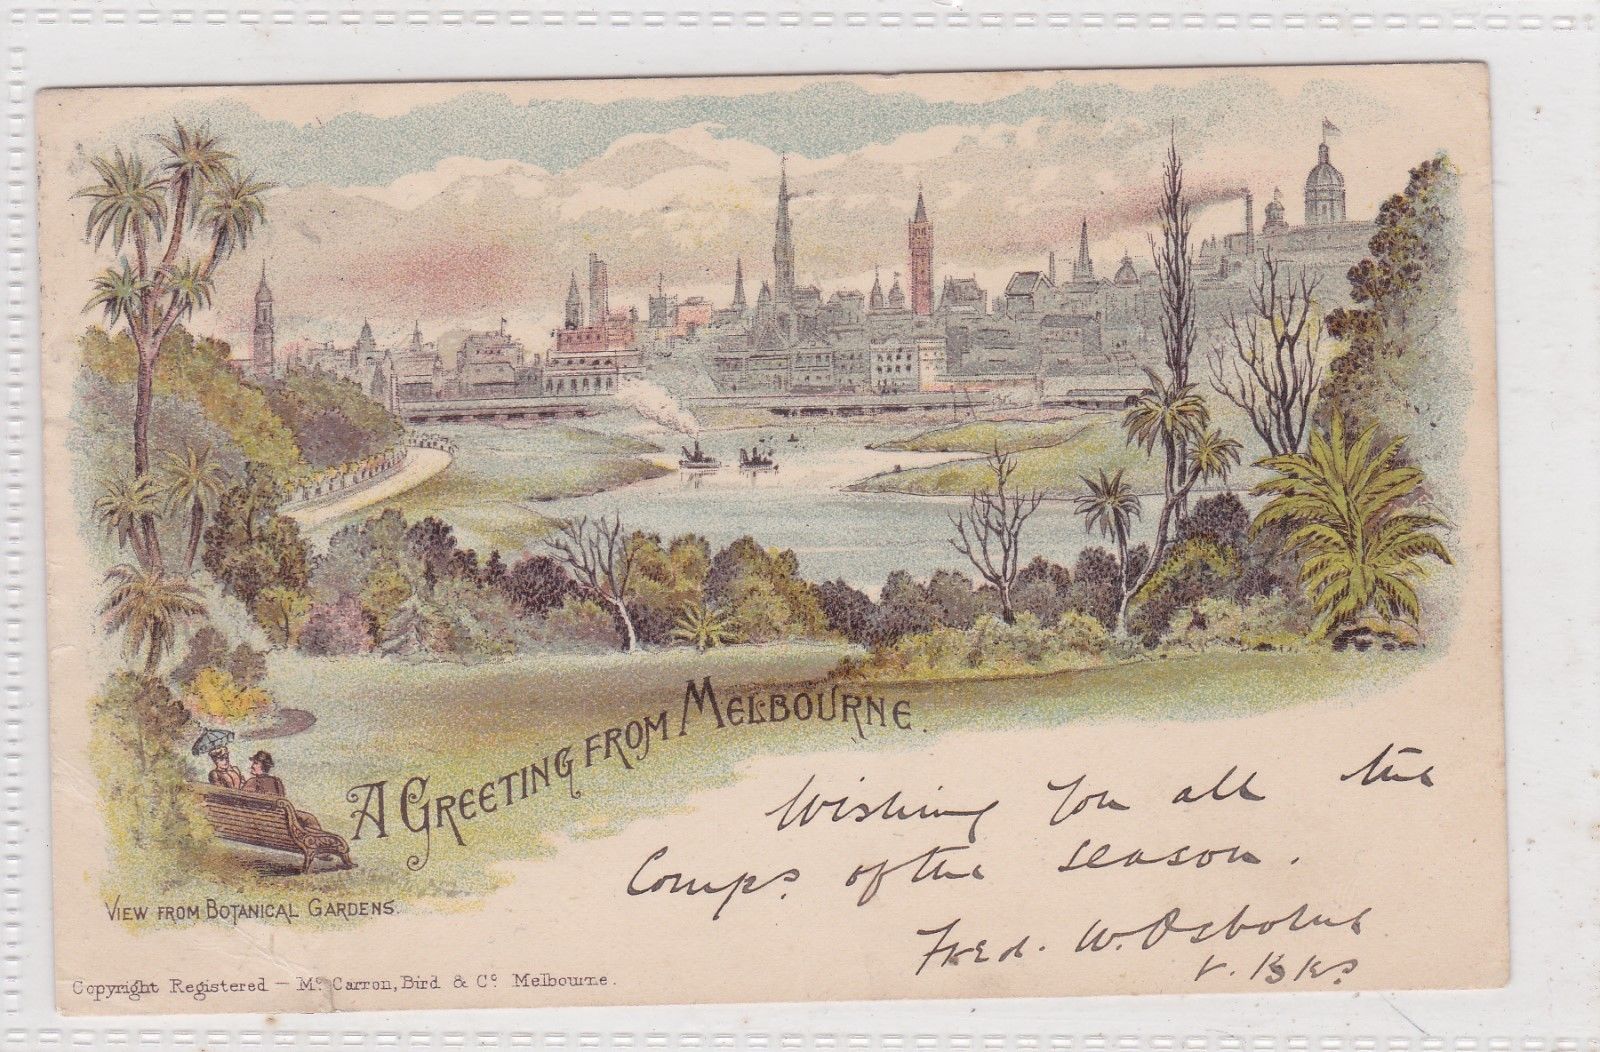 A GREETING FROM MELBOURNE.
Wishing you all the
Comps. of the season.
Fred. W. Osborne
VIEW FROM BOTANICAL GARDENS.
Copyright Registered – Mc. Carron, Bird & Co. Melbourne.